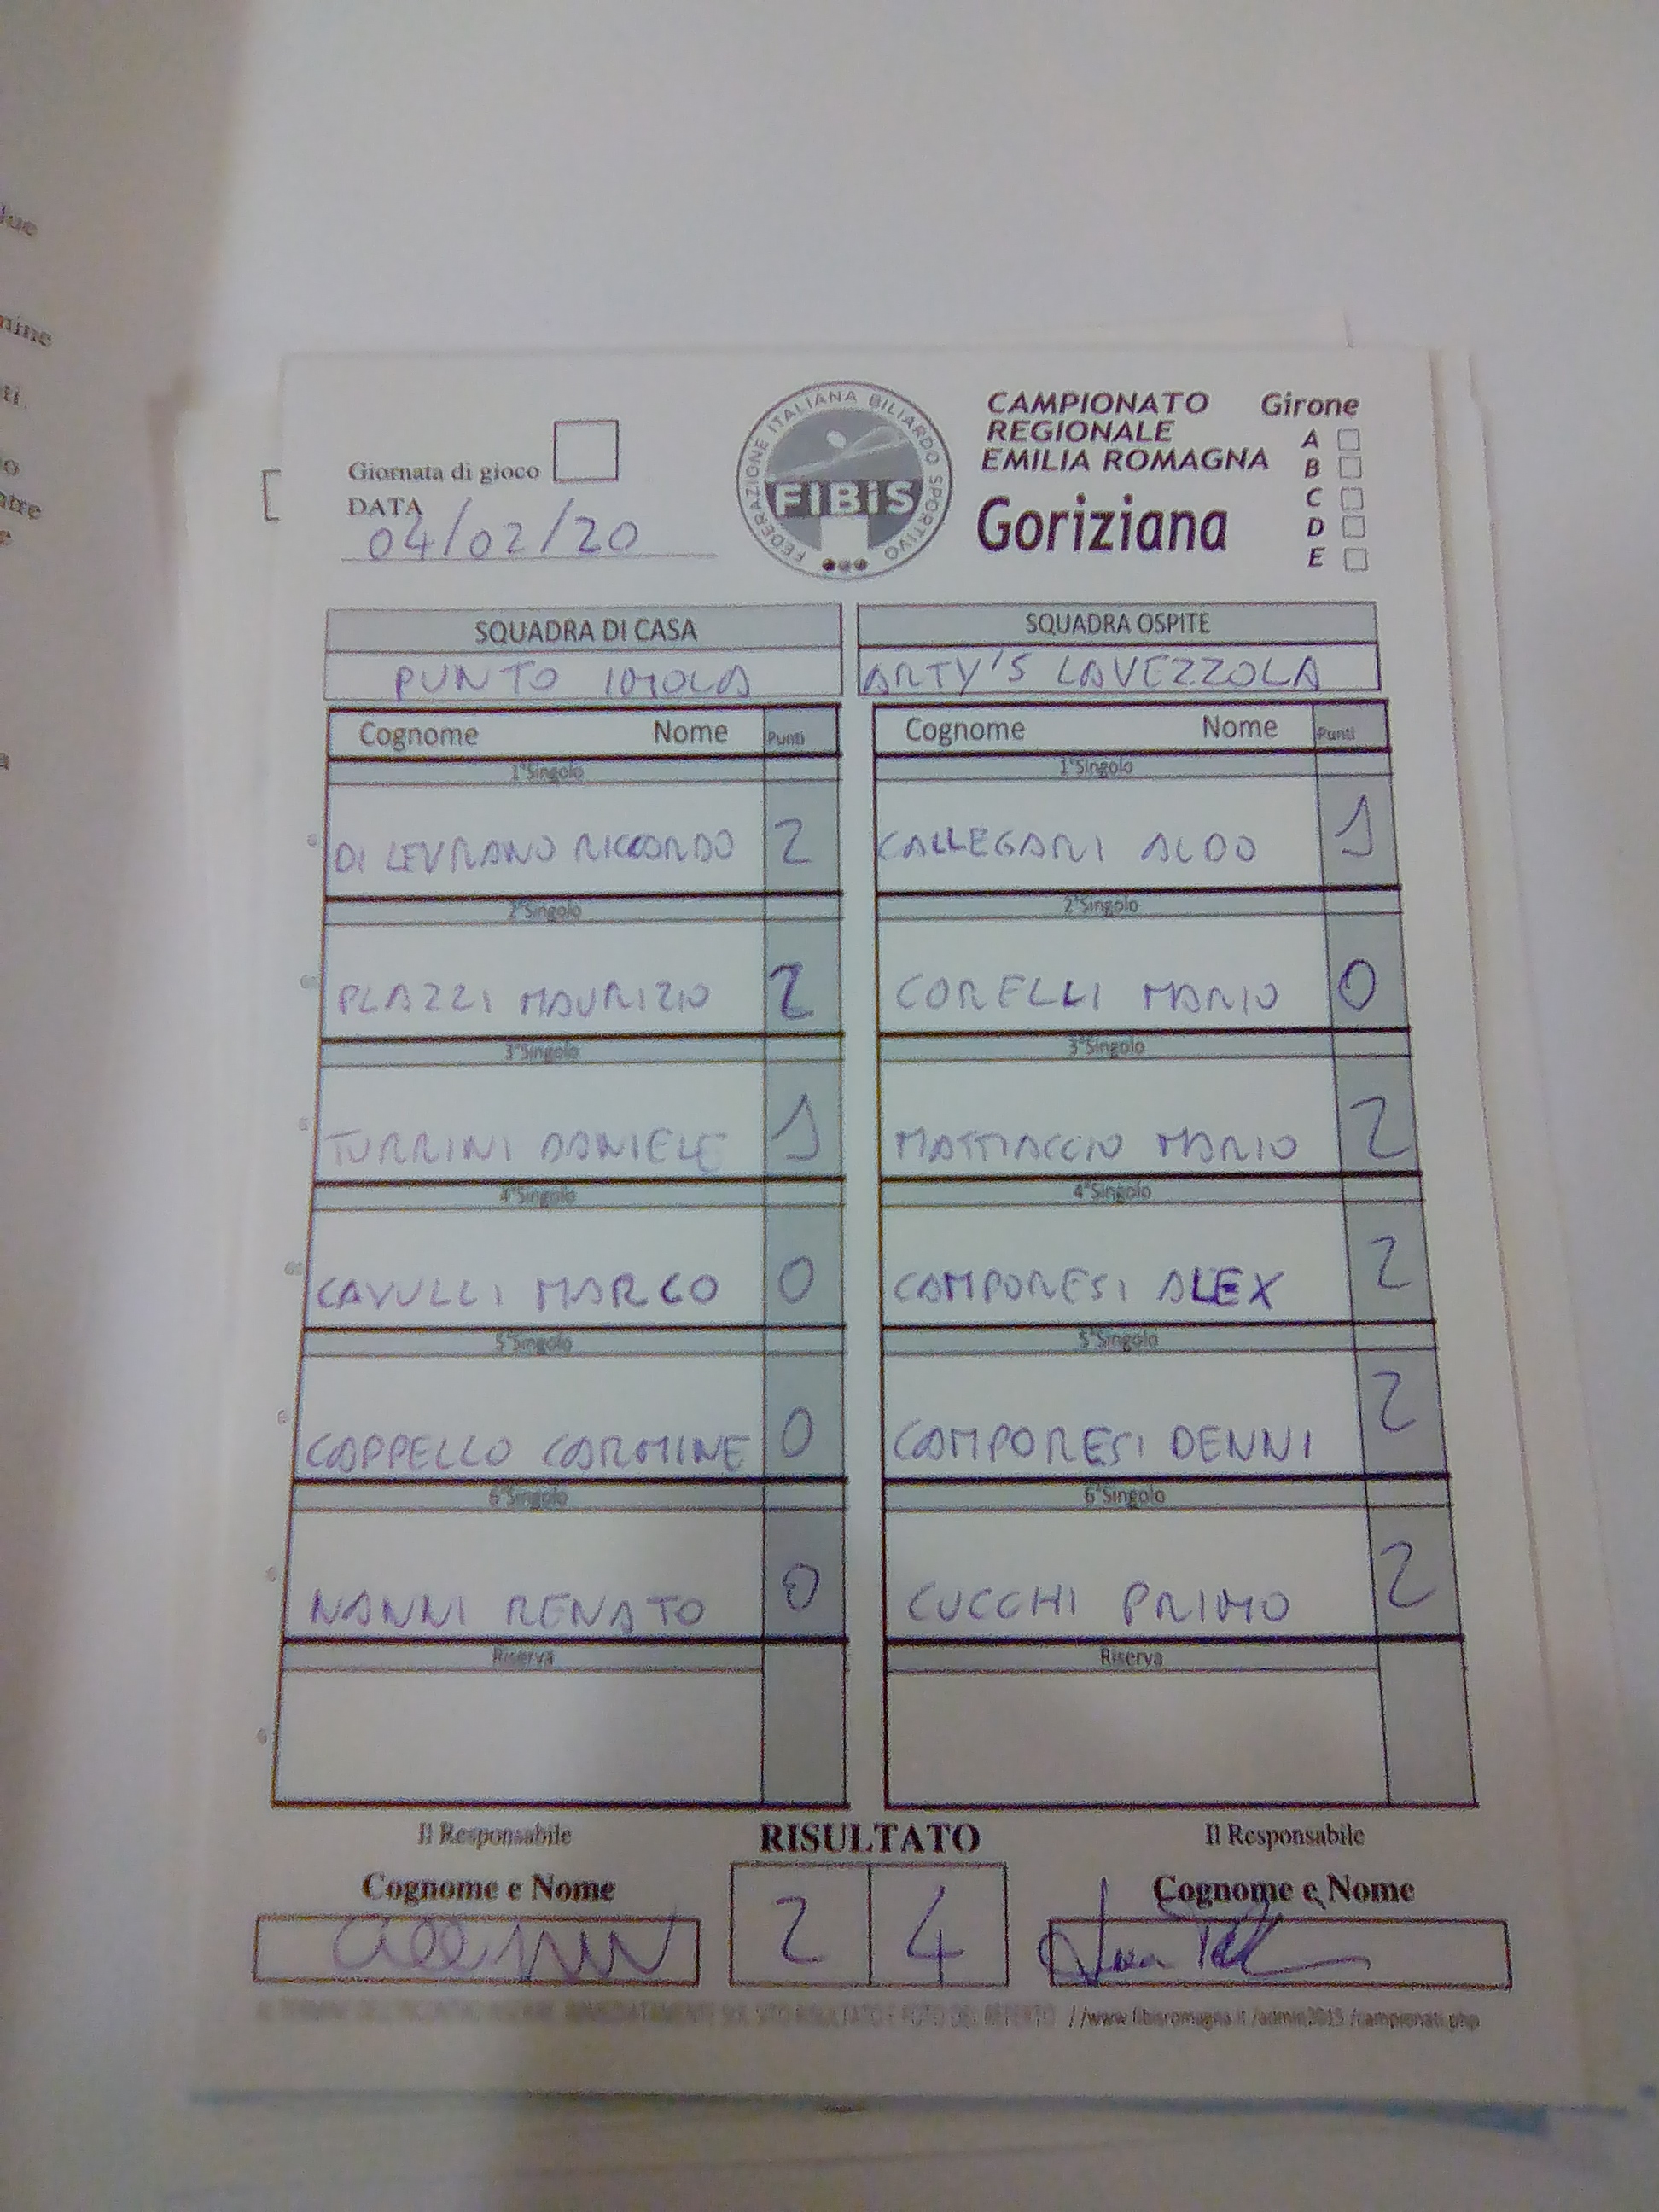 due
mine
ti.
Giornata di gioco
DATA
04/02/20
FEDERAZIONE ITALIANA BILIARDO SPORTIVO
FIBiS
CAMPIONATO
REGIONALE
EMILIA ROMAGNA
Goriziana
Girone
A
B
C
D
E
SQUADRA DI CASA
PUNTO IMOLA
SQUADRA OSPITE
ARTY'S LAVEZZOLA
Cognome Nome Punti
Cognome Nome Punti
1°Singolo
1°Singolo
DI LEVRANO RICCARDO 2
CALLEGARI ALDO 1
2°Singolo
2°Singolo
PLAZZI MAURIZIO 2
CORELLI MARIO 0
3°Singolo
3°Singolo
TURRINI DANIELE 1
MATTIACCIO MARIO 2
4°Singolo
4°Singolo
CAVULLI MARCO 0
CAMPORESI ALEX 2
5°Singolo
5°Singolo
CAPPELLO CARMINE 0
CAMPORESI DENNI 2
6°Singolo
6°Singolo
NANNI RENATO 0
CUCCHI PRIMO 2
Riserva
Riserva
Il Responsabile
RISULTATO
Il Responsabile
Cognome e Nome
2 4
Cognome e Nome
AL TERMINE DELL'INCONTRO INSERIRE IMMEDIATAMENTE SUL SITO RISULTATO E FOTO DEL REFERTO //www.fibisromagna.it/admin2015/campionati.php